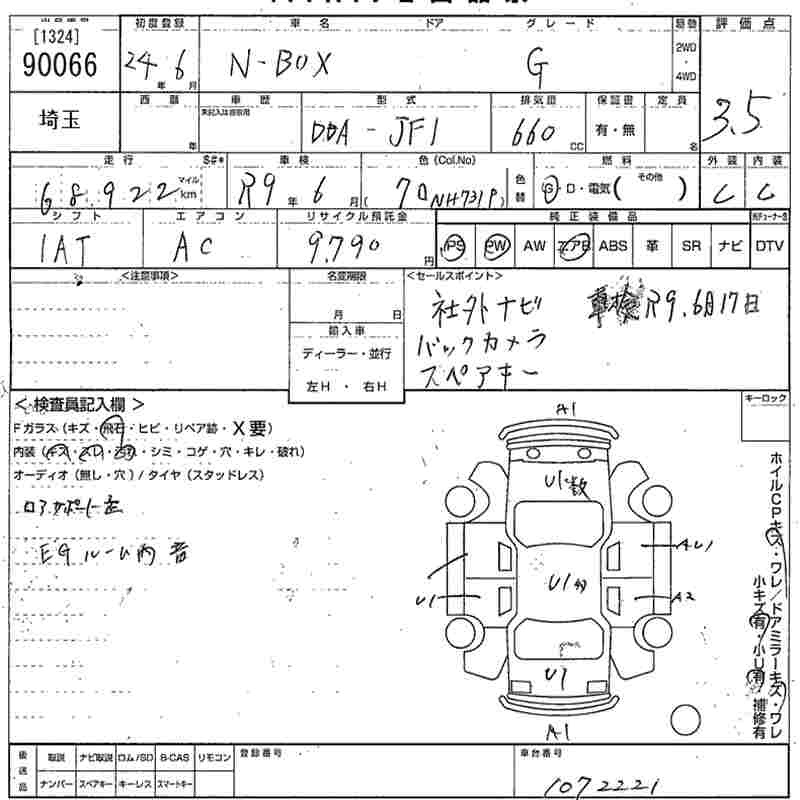 出品番号 初度登録 車名 ドア グレード 駆動 評価点
[1324]
90066 24年6月 N-BOX G 2WD・4WD 3.5
埼玉 西暦 年 車歴 未記入は自家用 型式 DBA-JF1 排気量 660cc 保証書 有・無 定員 名
走行 S#* 車検 色(Col.No) 色替 燃料 外装 内装
68,922 マイル km R9年6月 ( 70 NH731P) Ⓖ・ロ・電気( その他 ) C C
シフト エアコン リサイクル預託金 純正装備品
1AT AC 9.790円 PS PW AW エアB ABS 革 SR ナビ DTV
<注意事項> 名変期限 <セールスポイント>
月 日 社外ナビ 車検R9.6月17日
輸入車 バックカメラ
ディーラー・並行 スペアキー
左H・右H
< 検査員記入欄 > キーロック
Fガラス(キズ・飛石・ヒビ・リペア跡・X要)
内装(キズ・スレ・汚れ・シミ・コゲ・穴・キレ・破れ)
オーディオ(無し・穴)/タイヤ(スタッドレス)
ロアサポート歪
EGルーム内音
A1
U1数
AU1
U1 U1 A2
U1
A1
ホイルCPキズ・ワレ/ドアミラーキズ・ワレ
小キズ有・小U有・補修有
後送品 取説 ナビ取説 ロム/SD B-CAS リモコン 登録番号 車台番号
ナンバー スペアキー キーレス スマートキー 1072221